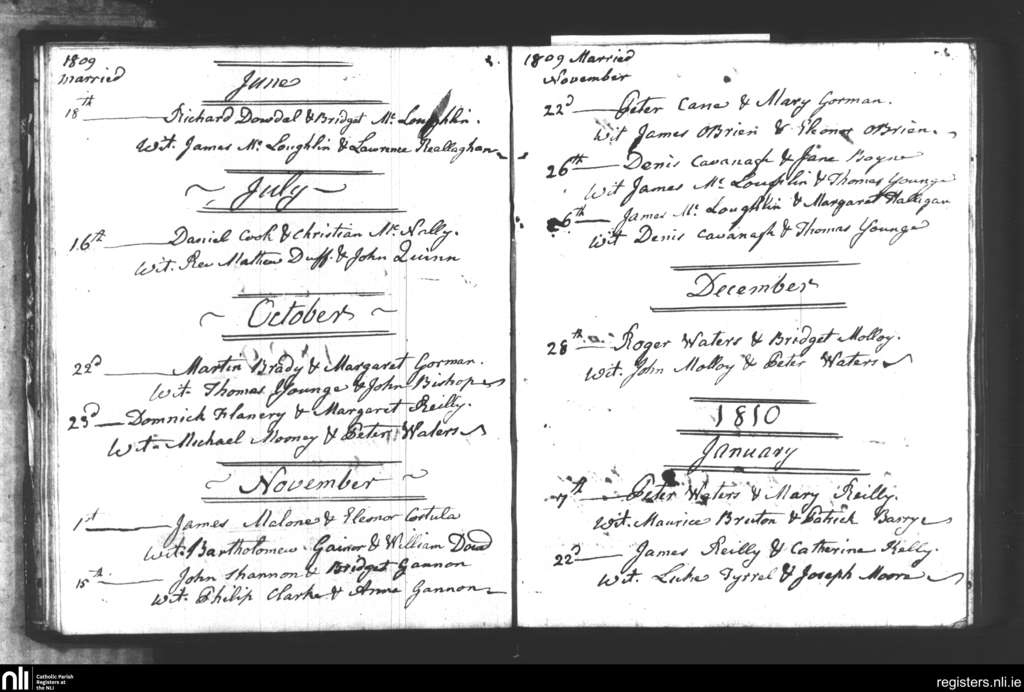 1809
Married
June
18th Richard Dowdal & Bridget Mc Loughlin.
Wit. James Mc Loughlin & Lawrence Reallaghan
July
16th Daniel Cook & Christian Mc Nally.
Wit. Rev Mathew Duff. & John Quinn
October
22d Martin Brady & Margaret Gorman.
Wit. Thomas Younge & John Bishop
23d Domnick Flanery & Margaret Reilly.
Wit. Michael Mooney & Peter Waters
November
1st James Malone & Eleonor
Wit. Bartholomew Gainor & William Dowd
15th John Shannon & Bridget Gannon
Wit. Philip Clarke & Anne Gannon
1809 Married
November
22d Peter Cane & Mary Gorman.
Wit James OBrien & Eleonor OBrien
26th Denis Cavanagh & Jane Boyne
Wit James Mc Loughlin & Thomas Younge
26th James Mc Loughlin & Margaret Halligan
Wit Denis Cavanagh & Thomas Younge
December
28th Roger Waters & Bridget Molloy.
Wit. John Molloy & Peter Waters
1810
January
7th Peter Waters & Mary Reilly.
Wit. Maurice Bruton & Patrick Barry
22d James Reilly & Catherine Kelly.
Wit. Luke Tyrrel & Joseph Moore
nli Catholic Parish
Registers at
the NLI
registers.nli.ie